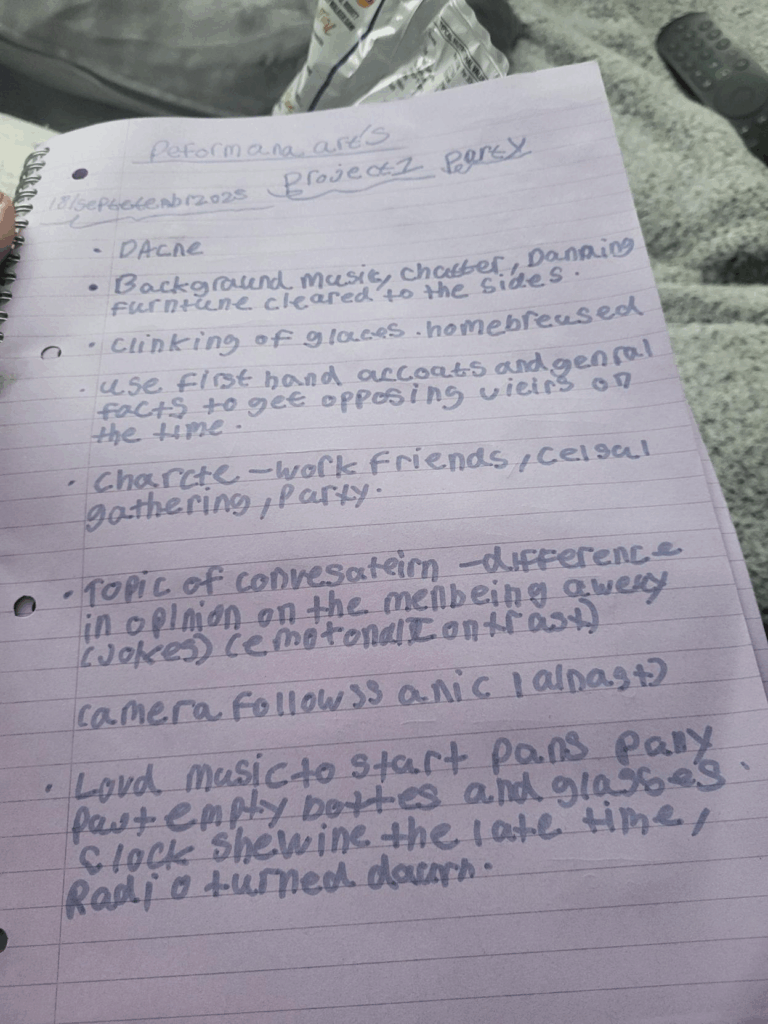 Peformana arts
Project 1 Party
18/septetenbr2025
• DAcne
• Background music, chatter, Danning
furntune cleared to the sides.
• clinking of glaces. homebreused
• use first hand accoats and genral
facts to get opposing vieirs on
the time.
• charcte - work friends, celsal
gathering, party.
• Topic of convesateirn - difference
in opinion on the men being awery
(jokes) (emotonal contrast)
camera follow ss a nic
• Loud music to start pans pany
past empty bottes and glasses.
clock shewine the late time,
Radio turned daurn.